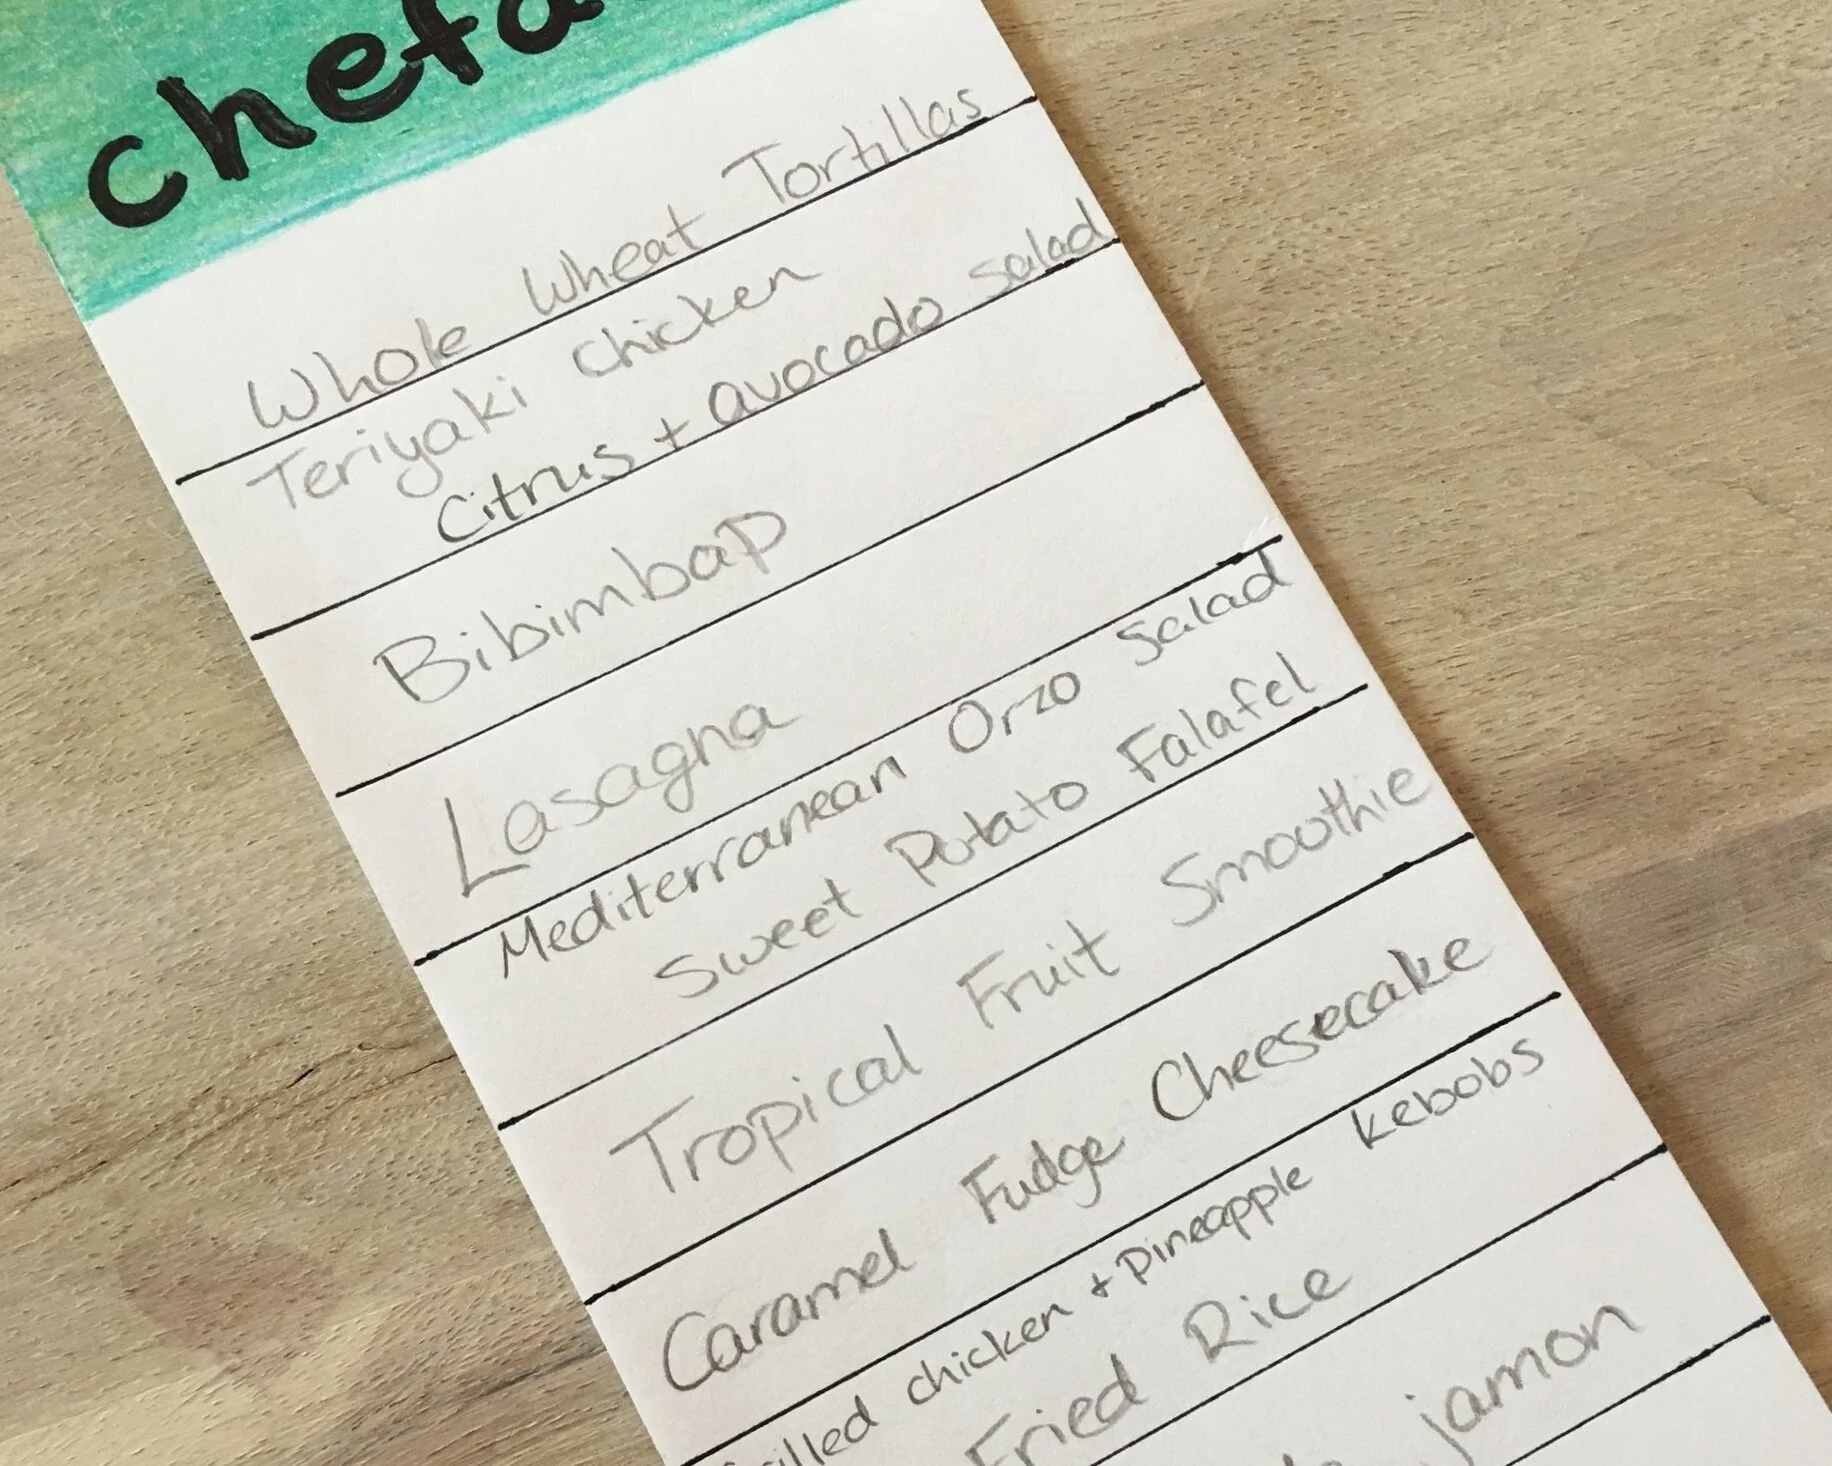 chefa
Whole Wheat Tortillas
Teriyaki chicken
Citrus + avocado salad
Bibimbap
Lasagna
Mediterranean Orzo Salad
Sweet Potato Falafel
Tropical Fruit Smoothie
Caramel Fudge Cheesecake
chicken + Pineapple kebobs
Fried Rice
jamon